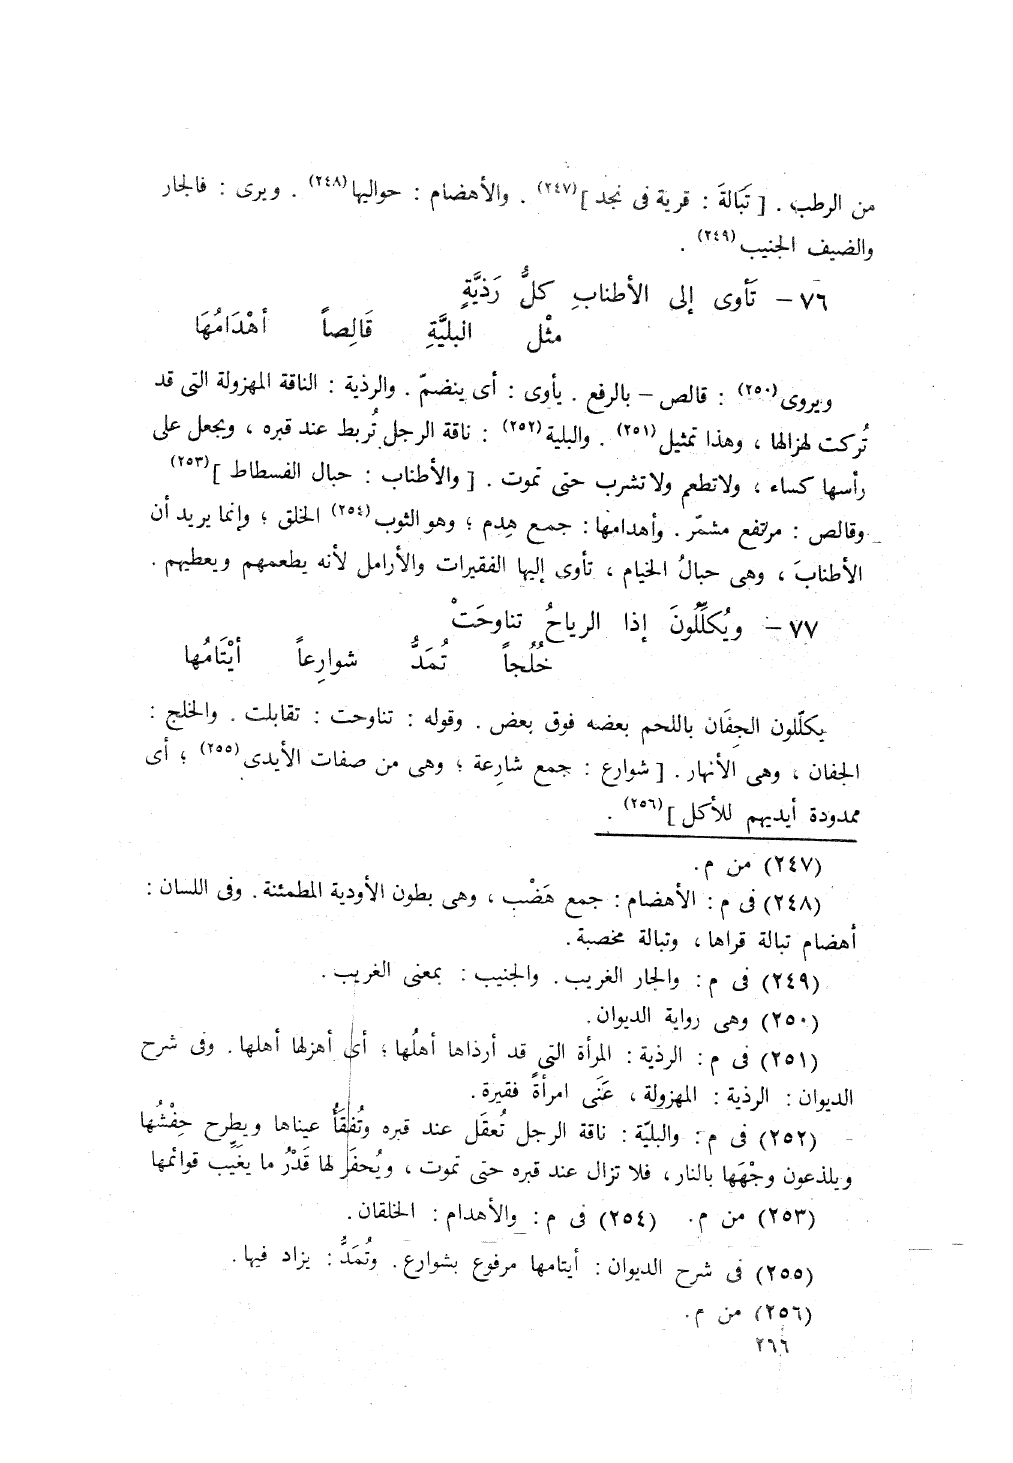 من الرطب . [ تَبَالَةَ : قرية فى نجد ](٢٤٧) . والأهضام : حواليها(٢٤٨) . ويرى : فالجار
والضيف الجنيب(٢٤٩) .
٧٦ – تَأوى إلى الأطنابِ كلُّ رَذيَّةٍ
مثْل البليَّةِ قَالِصاً أهْدَامُهَا
ويروى(٢٥٠) : قالص – بالرفع . يأوى : أى ينضمّ . والرذية : الناقة المهزولة التى قد
تُركت لهزالها ، وهذا تمثيل(٢٥١) . والبلية(٢٥٢) : ناقة الرجل تُربط عند قبره ، ويجعل على
رأسها كساء ، ولاتطعم ولاتشرب حتى تموت . [ والأطناب : حبال الفسطاط ](٢٥٣)
وقالص : مرتفع مشمّر . وأهدامها : جمع هِدم ؛ وهو الثوب(٢٥٤) الخلق ؛ وإنما يريد أن
الأطنابَ ، وهى حبالُ الخيام ، تأوى إليها الفقيرات والأرامل لأنه يطعمهم ويعطيهم .
٧٧ – ويُكلِّلُونَ إذا الرياحُ تناوحَتْ
خُلُجاً تُمَدُّ شوارِعاً أيْتَامُها
يكلّلون الجِفَان باللحم بعضه فوق بعض . وقوله : تناوحت : تقابلت . والخلج :
الجفان ، وهى الأنهار . [ شوارع : جمع شارِعة ؛ وهى من صفات الأيدى(٢٥٥) ؛ أى
ممدودة أيديهم للأكل ](٢٥٦) .
(٢٤٧) من م.
(٢٤٨) فى م : الأهضام : جمع هَضْب ، وهى بطون الأودية المطمئنة . وفى اللسان :
أهضام تبالة قراها ، وتبالة مخصبة .
(٢٤٩) فى م : والجار الغريب . والجنيب : بمعنى الغريب .
(٢٥٠) وهى رواية الديوان .
(٢٥١) فى م : الرذية : المرأة التى قد أرذاها أهلُها ؛ أى أهزلها أهلها . وفى شرح
الديوان : الرذية : المهزولة ، عَنَى امرأةً فقيرة .
(٢٥٢) فى م : والبليّة : ناقة الرجل تُعقَل عند قبره وتُفْقَأُ عيناها ويطرح حِفْشُها
ويلذعون وجْهَها بالنار ، فلا تزال عند قبره حتى تموت ، ويُحفَر لها قَدْرُ ما يغَيِّب قوائمها
(٢٥٣) من م . (٢٥٤) فى م : والأهدام : الخلقان .
(٢٥٥) فى شرح الديوان : أيتامها مرفوع بشوارع . وتُمَدُّ : يزاد فيها .
(٢٥٦) من م .
٢٦٦